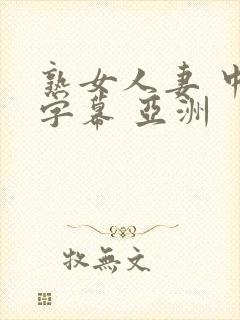 熟女人妻 中
字幕 亞洲
牧無文